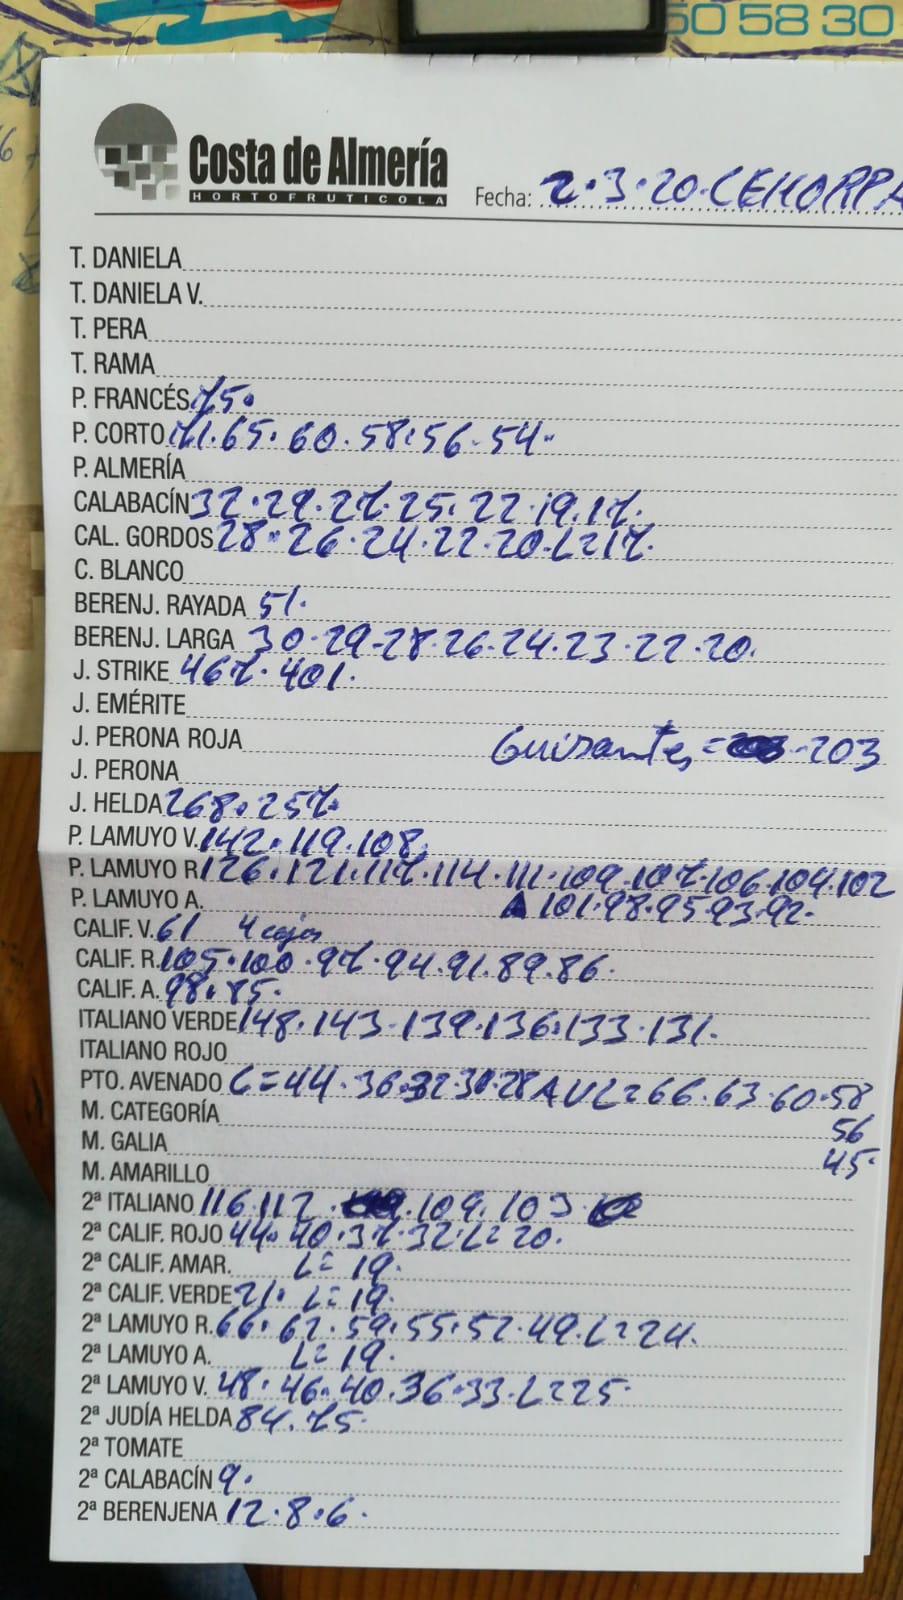 50 58 30
Costa de Almería
HORTOFRUTICOLA
Fecha: 2.3.20. CEHORPA
T. DANIELA
T. DANIELA V.
T. PERA
T. RAMA
P. FRANCÉS 75.
P. CORTO 71.65.60.58.56.54.
P. ALMERÍA
CALABACÍN 32.29.27.25.22.19.17.
CAL. GORDOS 28.26.24.22.20.L=17.
C. BLANCO
BERENJ. RAYADA 51.
BERENJ. LARGA 30.29.28.26.24.23.22.20.
J. STRIKE 467.401.
J. EMÉRITE
J. PERONA ROJA Guisantes = 203
J. PERONA
J. HELDA 268.257.
P. LAMUYO V. 142.119.108.
P. LAMUYO R 126.121.117.114.111.109.107.106.104.102
P. LAMUYO A. 101.98.95.93.92.
CALIF. V. 61 4 cajas
CALIF. R. 105.100.97.94.91.89.86.
CALIF. A. 98.85.
ITALIANO VERDE 148.143.139.136.133.131.
ITALIANO ROJO
PTO. AVENADO C=44.36.32.30.28 AVL=66.63.60.58
56
M. CATEGORÍA
45.
M. GALIA
M. AMARILLO
2ª ITALIANO 116.112.109.103.
2ª CALIF. ROJO 44.40.37.32.L=20.
2ª CALIF. AMAR. L=19.
2ª CALIF. VERDE 21. L=19.
2ª LAMUYO R. 66.62.59.55.52.49.L=24.
2ª LAMUYO A. L=19.
2ª LAMUYO V. 48.46.40.36.33.L=25.
2ª JUDÍA HELDA 84.75.
2ª TOMATE
2ª CALABACÍN 9.
2ª BERENJENA 12.8.6.